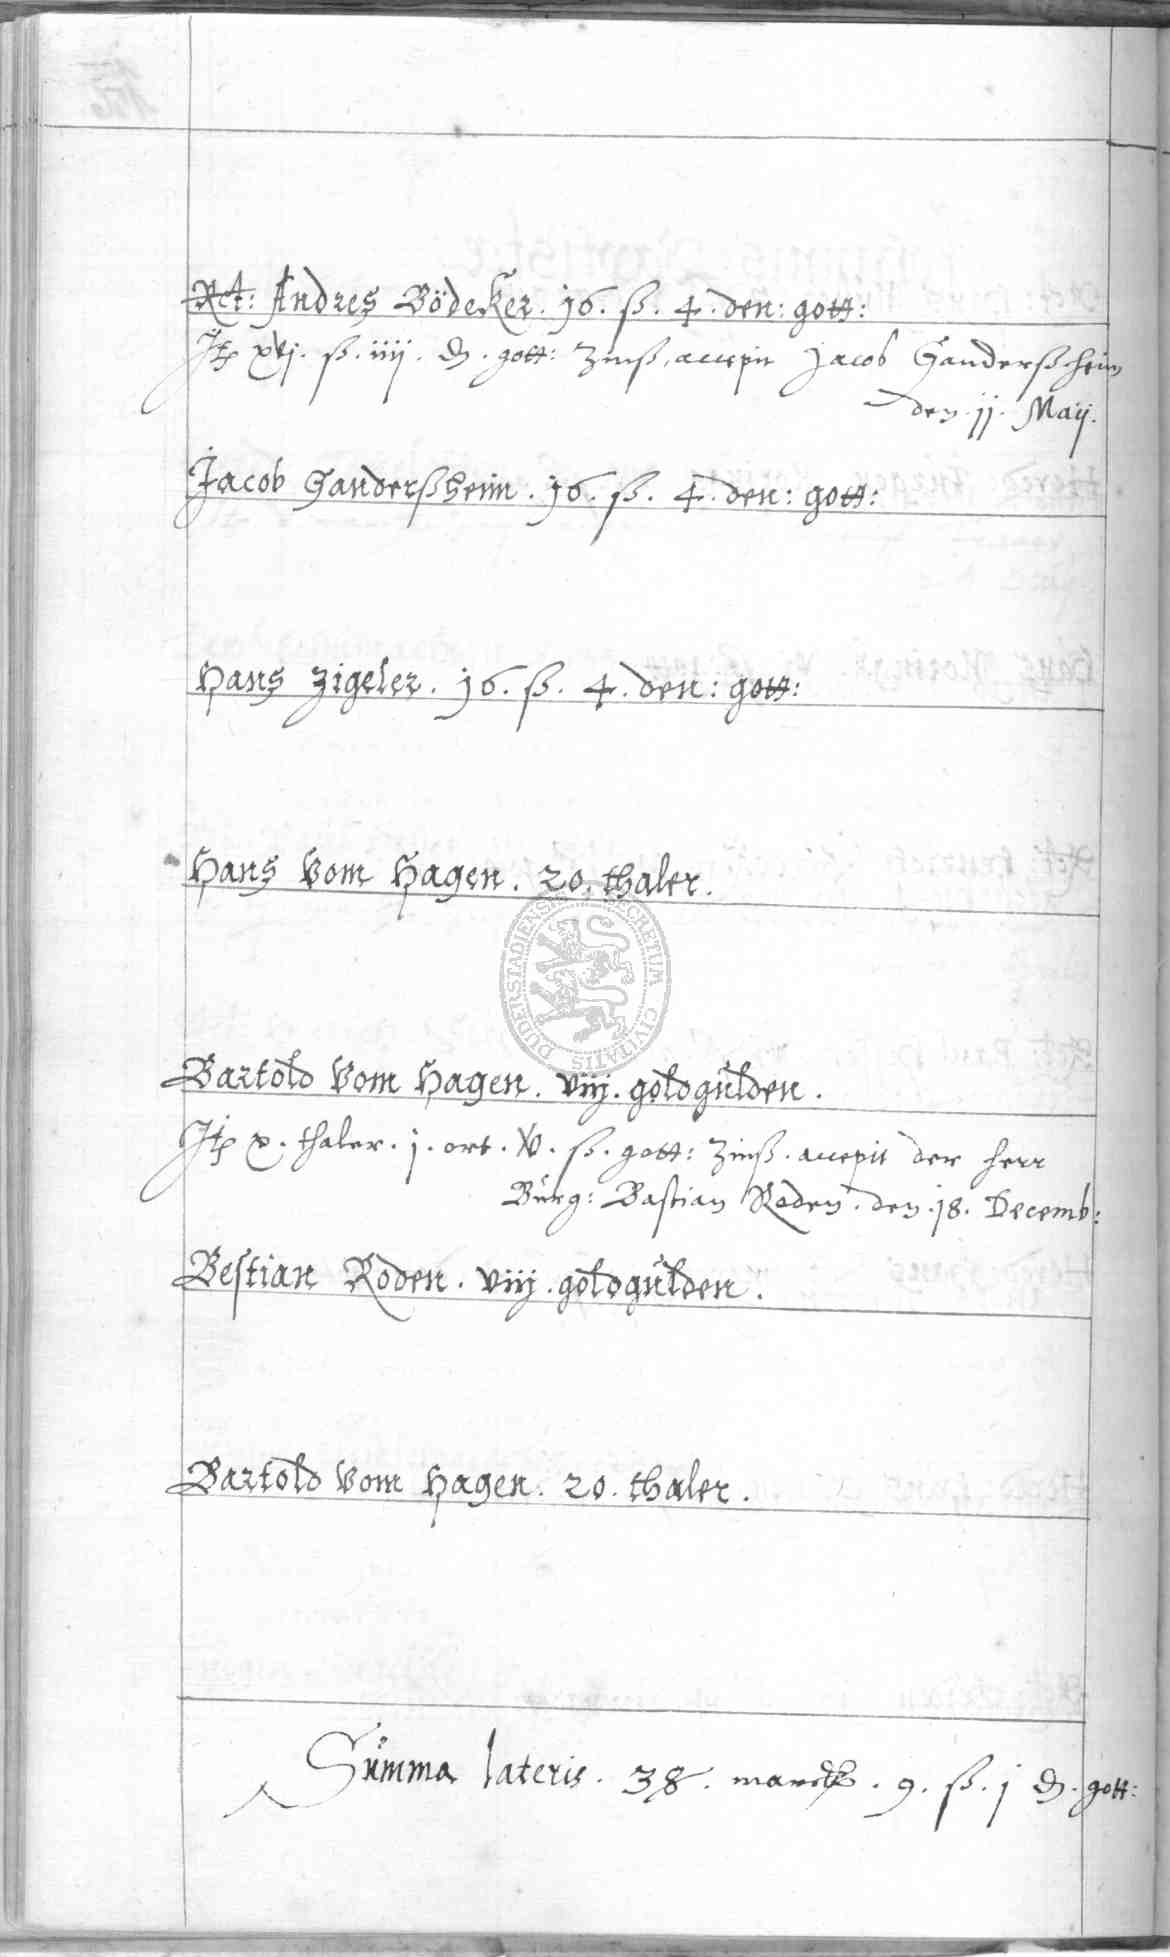 Rct: Andres Bödeker. 16. ß. 4. den: gott:
Jt xvj. ß. iiij. d. gott: Zinß, accepit Jacob Ganderßheim
den. 11. Maij.
Jacob Ganderßheim. 16. ß. 4. den: gott:
Hans Zigeler. 16. ß. 4. den: gott:
Hans Vom Hagen. 20. thaler.
SECRETUM CIVITATIS DUDERSTADIENSIS
Bartold Vom Hagen. viij. goldgülden.
Jt x. thaler. j. ort. V. ß. gott: Zinß. accepit der herr
Bürg: Bastian Roden. den. 18. Decemb:
Bestian Roden. viij. goldgülden.
Bartold Vom Hagen. 20. thaler.
Summa lateris. 38. marck. 9. ß. j d. gott: